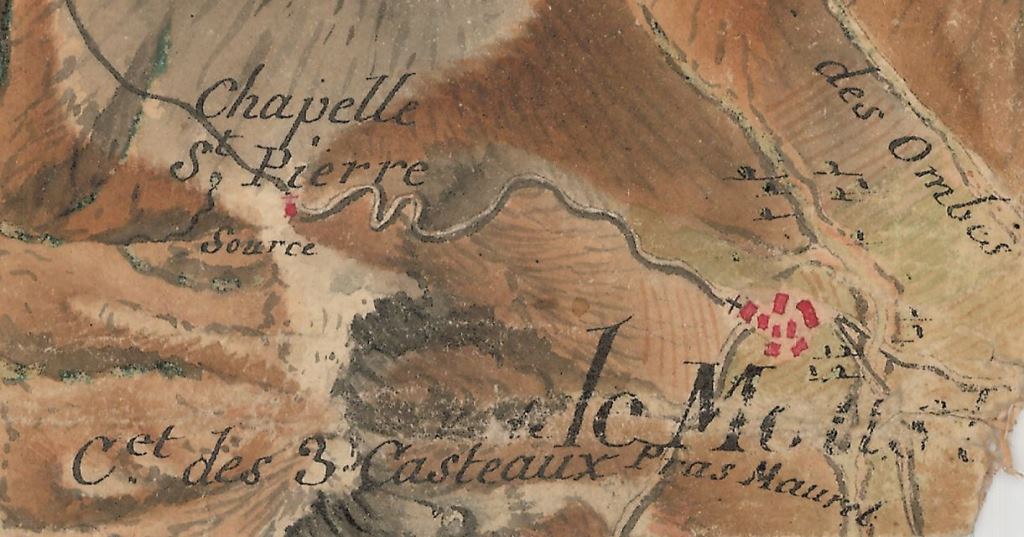 Chapelle
St. Pierre
Source
des Ombis
le
Cet. des 3 Casteaux
Pras Maurel